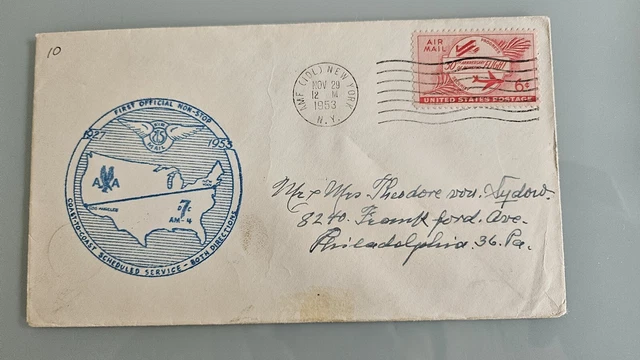 10
AMF (IDL) NEW YORK
NOV 29
12 M
1953
N.Y.
AIR
MAIL
6¢
UNITED STATES POSTAGE
FIRST OFFICIAL NON-STOP
1927
1953
MAIL
A A
LOS ANGELES
7¢
AM-4
COAST-TO-COAST SCHEDULED SERVICE - BOTH DIRECTIONS
Mr & Mrs. Theodore von Sydow.
8240. Frankford. Ave.
Philadelphia. 36. Pa.